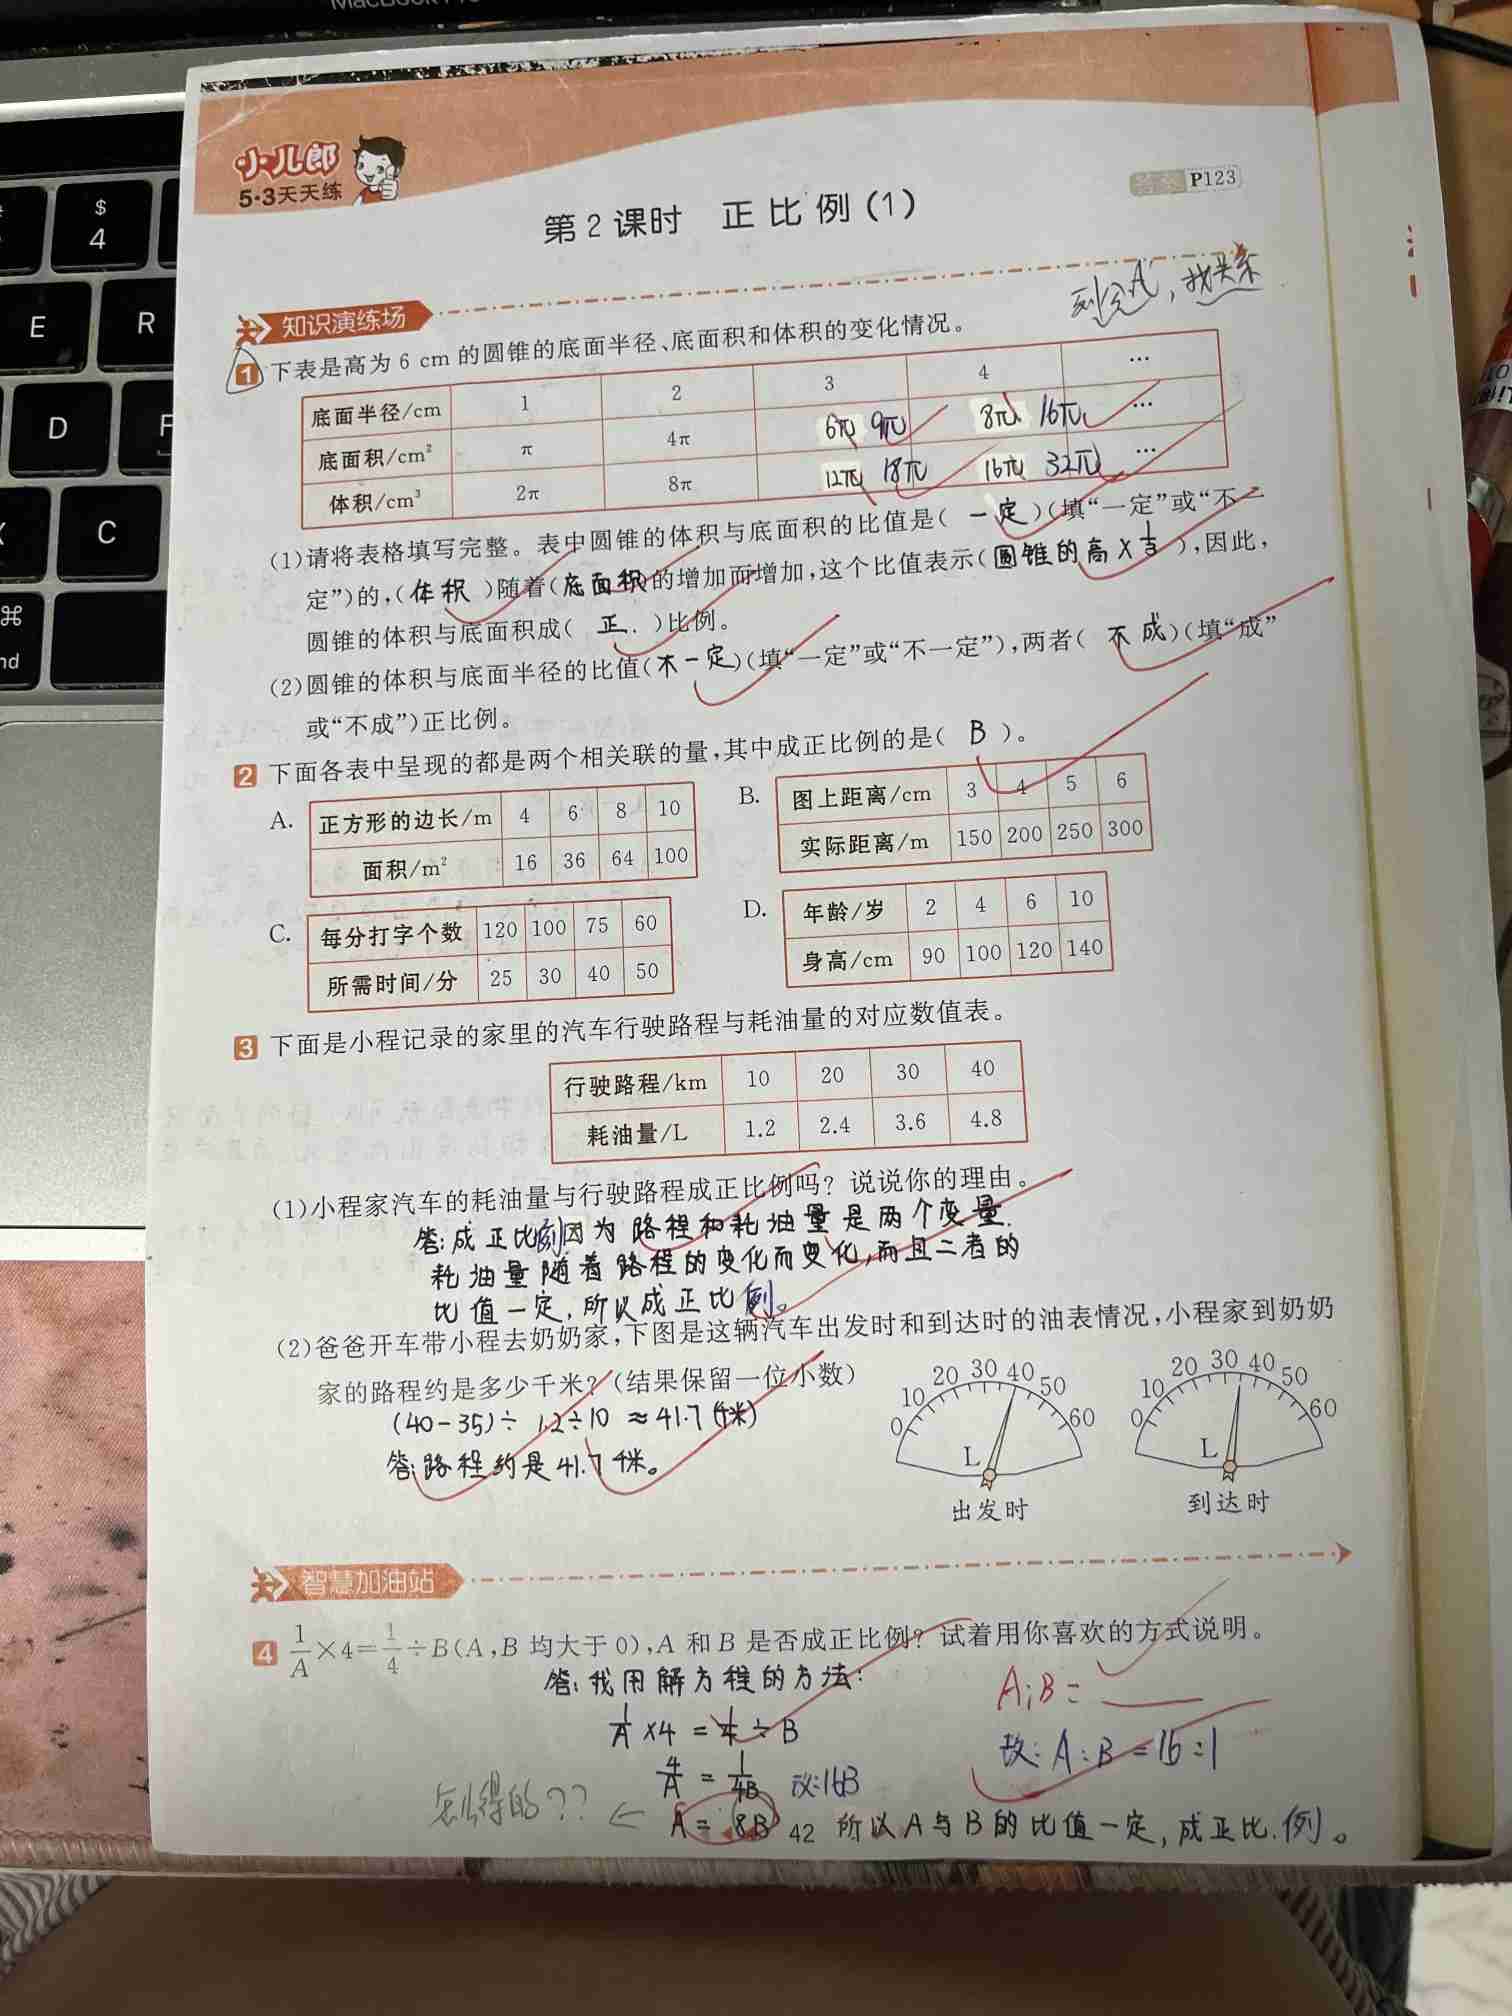 小儿郎
5·3天天练
P123
第2课时 正比例(1)
找关系
知识演练场
1 下表是高为 6 cm 的圆锥的底面半径、底面积和体积的变化情况。
底面半径/cm 1 2 3 4 …
底面积/cm² π 4π 6π 9π 8π 16π …
体积/cm³ 2π 8π 12π 18π 16π 32π …
(1)请将表格填写完整。表中圆锥的体积与底面积的比值是( 一定 )(填“一定”或“不一
定”)的,( 体积 )随着(底面积)的增加而增加,这个比值表示(圆锥的高×1/3),因此,
圆锥的体积与底面积成( 正 )比例。
(2)圆锥的体积与底面半径的比值(不一定)(填“一定”或“不一定”),两者( 不成)(填“成”
或“不成”)正比例。
2 下面各表中呈现的都是两个相关联的量,其中成正比例的是( B )。
A. 正方形的边长/m 4 6 8 10
面积/m² 16 36 64 100
B. 图上距离/cm 3 4 5 6
实际距离/m 150 200 250 300
C. 每分打字个数 120 100 75 60
所需时间/分 25 30 40 50
D. 年龄/岁 2 4 6 10
身高/cm 90 100 120 140
3 下面是小程记录的家里的汽车行驶路程与耗油量的对应数值表。
行驶路程/km 10 20 30 40
耗油量/L 1.2 2.4 3.6 4.8
(1)小程家汽车的耗油量与行驶路程成正比例吗？说说你的理由。
答:成正比例因为路程和耗油量是两个变量.
耗油量随着路程的变化而变化,而且二者的
比值一定,所以成正比例。
(2)爸爸开车带小程去奶奶家,下图是这辆汽车出发时和到达时的油表情况,小程家到奶奶
家的路程约是多少千米？(结果保留一位小数)
(40-35)÷ 1.2÷10 ≈41.7(千米)
答:路程约是41.7千米。
0 10 20 30 40 50 60
L
出发时
0 10 20 30 40 50 60
L
到达时
智慧加油站
4 1/A×4=1/4÷B(A,B 均大于 0),A 和 B 是否成正比例？试着用你喜欢的方式说明。
答:我用解方程的方法:
1/A ×4 = 1/4 ÷ B
4/A = 1/4B 改:16B
A = 8B 所以A与B的比值一定,成正比例。
A:B=
故:A:B=16:1
怎么得的??←
42